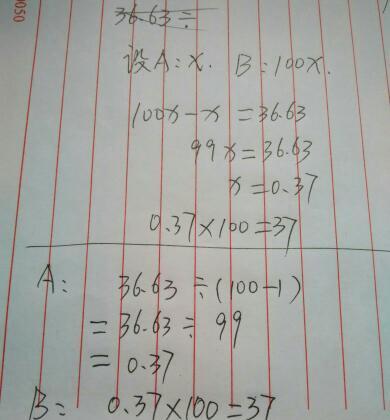 050
36.63÷
设A:x. B:100x.
100x-x=36.63
99x=36.63
x=0.37
0.37×100=37
A: 36.63÷(100-1)
=36.63÷99
=0.37
B: 0.37×100=37